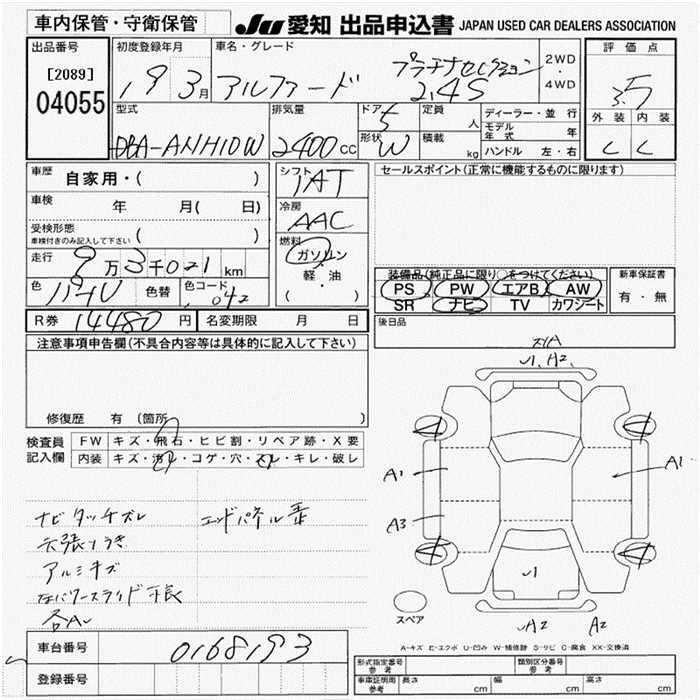 車内保管・守衛保管
JU 愛知 出品申込書 JAPAN USED CAR DEALERS ASSOCIATION
出品番号
[2089]
04055
初度登録年月
19 3月
車名・グレード
アルファード
プラチナセレクション
2.4S
2WD
・
4WD
評価点
3.5
外装 内装
C C
型式
DBA-ANH10W
排気量
2400cc
ドア
5
形状
W
定員
人
積載
kg
ディーラー・並行
モデル年式 年
ハンドル 左・右
車歴 自家用・( )
車検 年 月( 日)
受検形態
車検付きのみ記入して下さい ( )
走行 9万3千021km
色 パール 色替 色コード 042
R券 14480円 名変期限 月 日
シフト
IAT
冷房
AAC
燃料
ガソリン
軽・油
( )
セールスポイント(正常に機能するものに限ります)
装備品(純正品に限り○をつけてください)
PS PW エアB AW
SR ナビ TV カワシート
新車保証書
有・無
後日品
注意事項申告欄(不具合内容等は具体的に記入して下さい)
修復歴 有 (箇所 )
検査員記入欄
FW キズ・飛石・ヒビ割・リペア跡・X要
内装 キズ・汚れ・コゲ・穴・スレ・キレ・破レ
ナビタッチズレ
エンドパネル歪
天張りうき
アルミキズ
右パワースライド不良
各A
A2
A1
A1
A3
A2 A2
スペア
A-キズ E-エクボ U-凹み W-補修跡 S-サビ C-腐食 XX-交換済
車台番号 0168193
登録番号
形式指定番号 参考
類別区分番号 参考
車庫証明用 参考 長さ cm 幅 cm 高さ cm